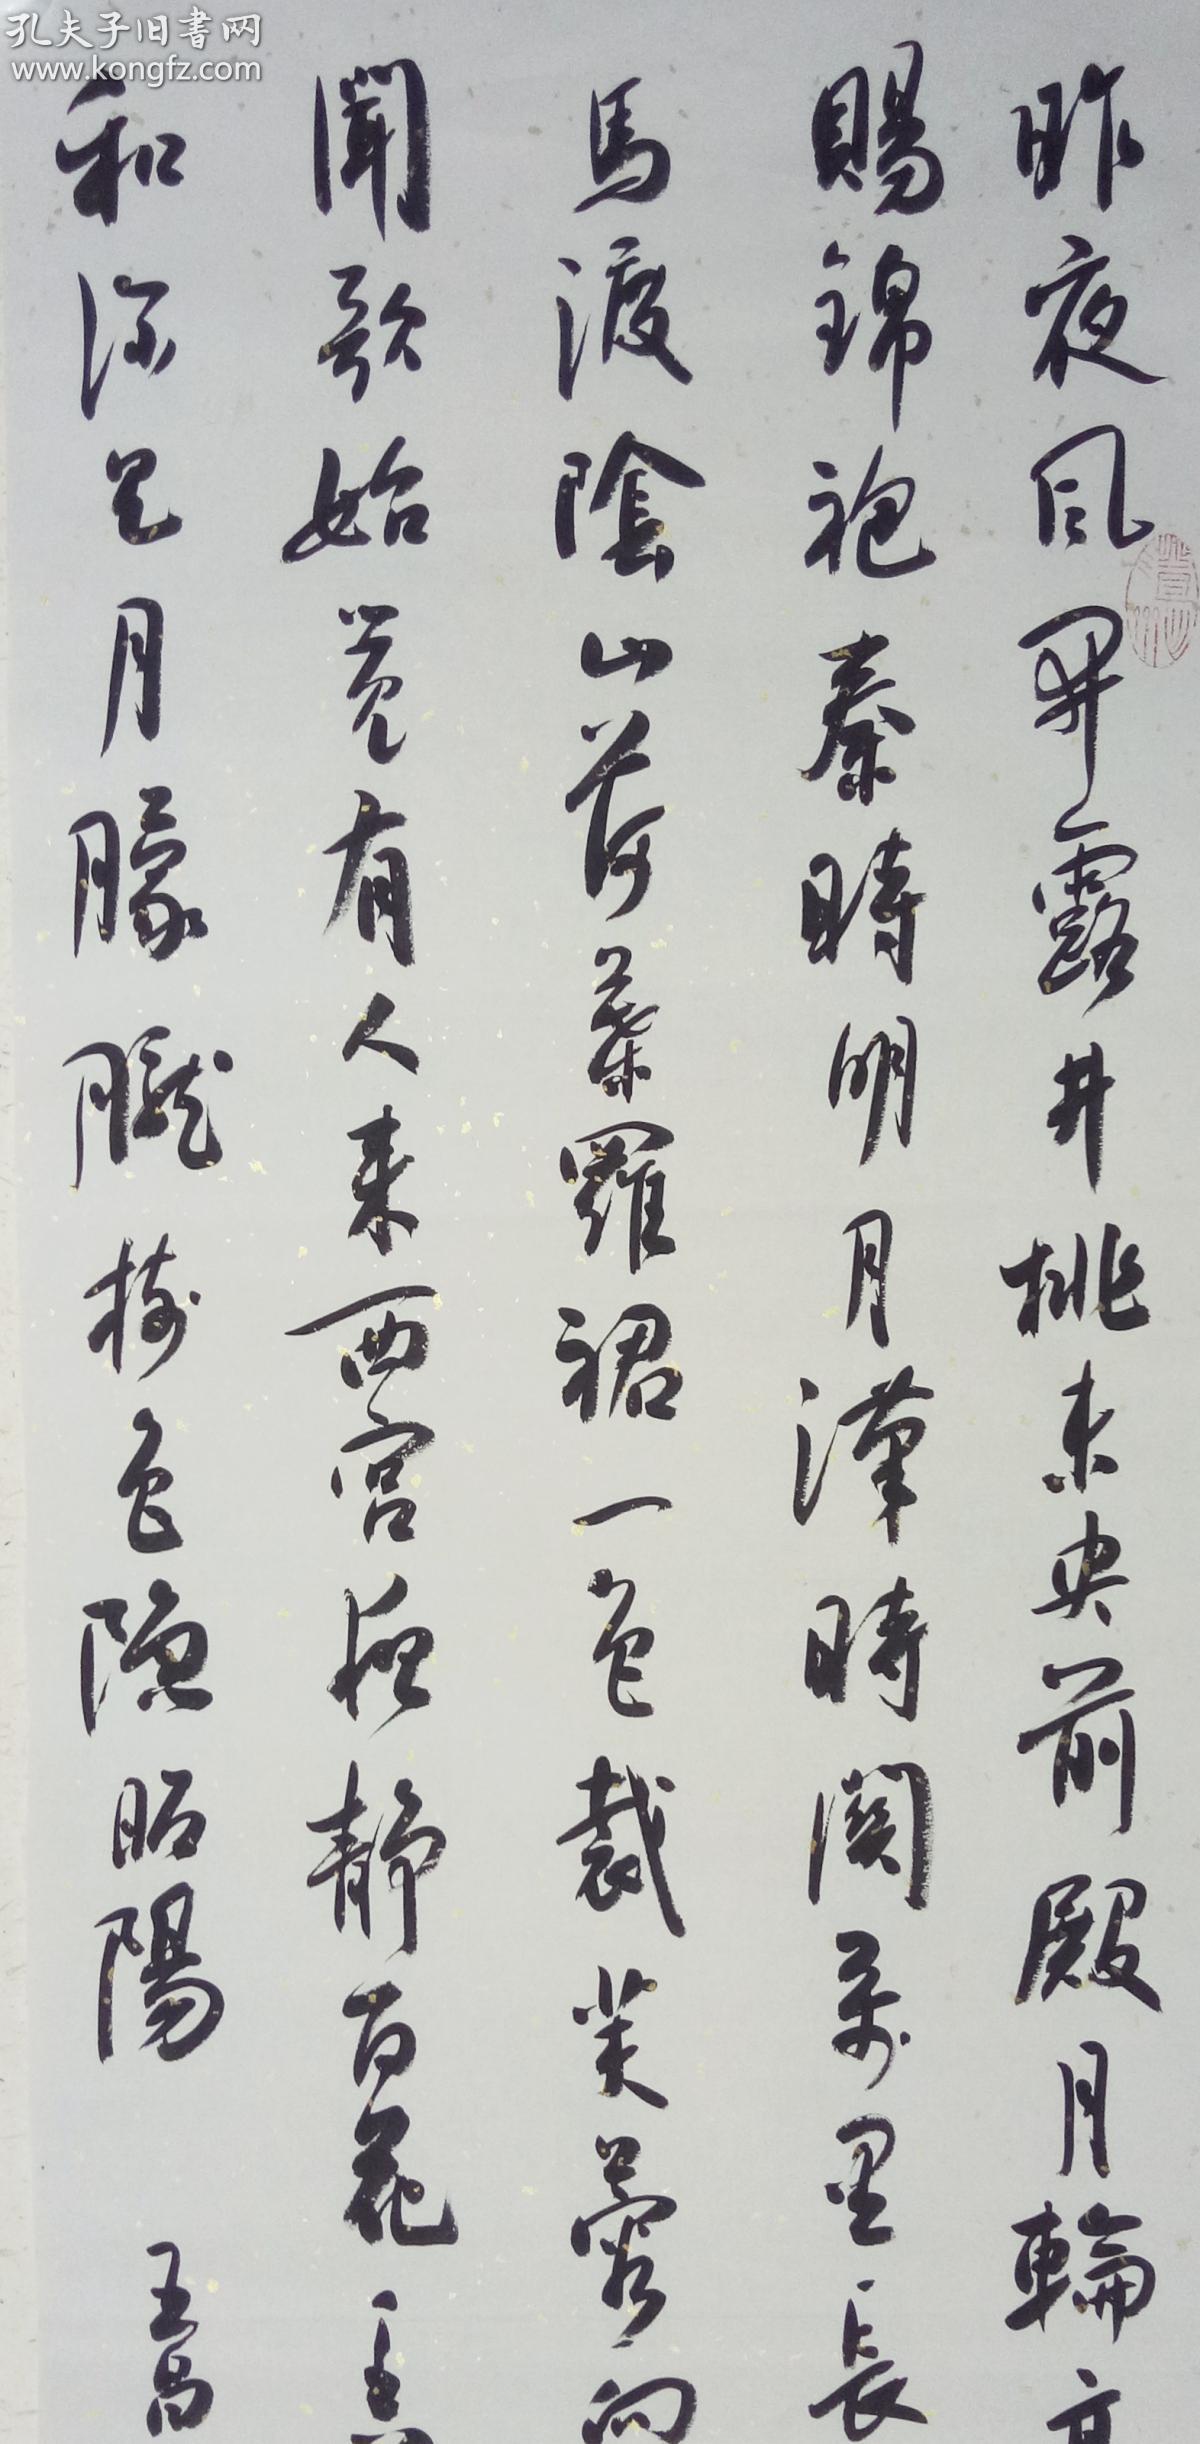 孔夫子旧書网
www.kongfz.com
昨夜风開露井桃未央前殿月輪高
賜錦袍秦時明月漢時關萬里長
馬渡陰山荷葉羅裙一色裁芙蓉向
聞歌始覺有人来西宫夜静百花
和深見月朦朧樹色隐昭陽 王昌